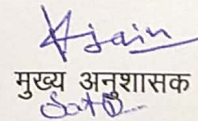 Jain
मुख्य अनुशासक